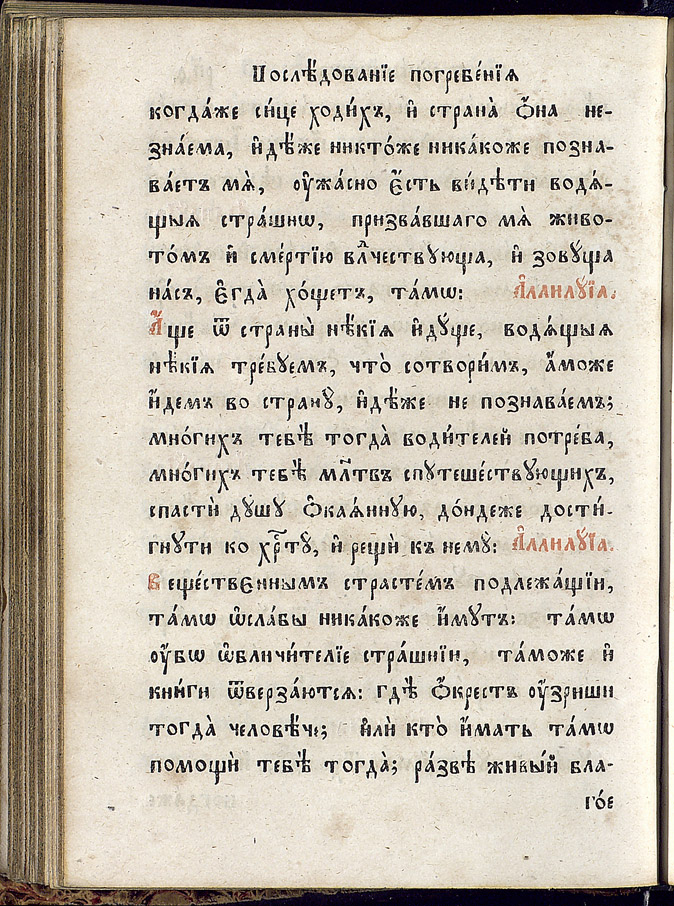 Послѣ́дованїе погребе́нїѧ
когда́же си́це ходи́хъ, и҆ страна̀ ѻ҆́на не-
зна́ема, и҆дѣ́же никто́же ника́коже позна-
ва́етъ мѧ̀, ᲂу҆жа́сно є҆́сть ви́дѣти водѧ́-
щыѧ стра́шнѡ, призва́вшаго мѧ̀ живо-
то́мъ и҆ сме́ртїю влⷣчествꙋюща, и҆ зовꙋ́ща
на́съ, є҆гда̀ хо́щетъ, та́мѡ: А҆ллилꙋ́їа.
А҆́ще ѿ страны̀ нѣ́кїѧ и҆дꙋ́ще, водѧ́щыѧ
нѣ́кїѧ тре́бꙋемъ, что̀ сотвори́мъ, а҆́може
и҆́демъ во странꙋ̀, и҆дѣ́же не познава́емъ;
мно́гихъ тебѣ̀ тогда̀ води́телей потре́ба,
мно́гихъ тебѣ̀ мл҃твъ спꙋтеше́ствꙋющихъ,
спастѝ дꙋ́шꙋ ѻ҆каѧ́ннꙋю, до́ндеже дости́-
гнꙋти ко хрⷭ҇тꙋ̀, и҆ рещѝ къ немꙋ̀: А҆ллилꙋ́їа.
Веще́ственнымъ страсте́мъ подлежа́щїи,
та́мѡ ѡ҆сла́бы ника́коже и҆́мꙋтъ: та́мѡ
ᲂу҆́бѡ ѡ҆бличи́телїе стра́шнїи, та́може и҆
кни́ги ѿверза́ютсѧ: гдѣ̀ ѻ҆́крестъ ᲂу҆́зриши
тогда̀ человѣ́че; и҆лѝ кто̀ и҆́мать та́мѡ
помощѝ тебѣ̀ тогда̀; ра́звѣ живы́й бла-
го́е